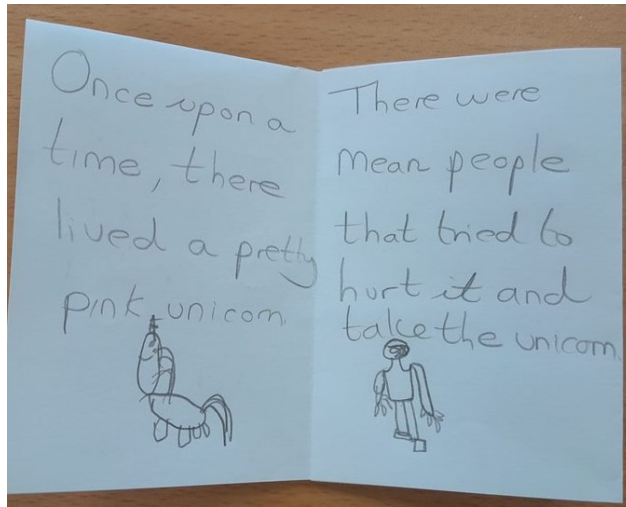 Once upon a
time, there
lived a pretty
pink unicorn
There were
mean people
that tried to
hurt it and
take the unicorn.